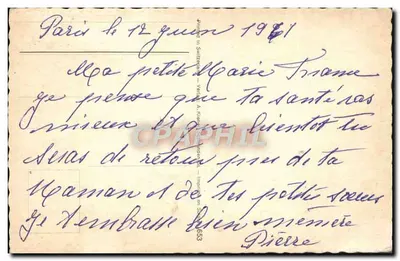 Paris le 12 juin 1961
Ma petite Marie
je pense que ta santé vas
mieux et que bientot tu
seras de retour pres de ta
Maman et de tes petites sœurs
Je t'embrasse bien
Pierre
CPARAMA.COM